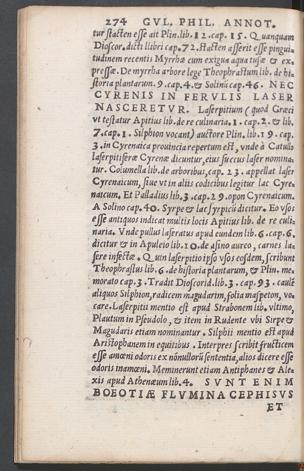 274 GVL. PHIL. ANNOT.
tur stacten esse ait Plin. lib. 12. cap. 15. Quanquam
Dioscor. dicti libri cap. 72. stacten asserit esse pingui-
tudinem recentis Myrrhæ cum exigua aqua tusæ & ex-
pressæ. De myrrha arbore lege Theophrastum lib. de hi-
storia plantarum. 9. cap. 4. & Solinū cap. 46. NEC
CYRENIS IN FERVLIS LASER
NASCERETVR. Laserpitium (quod Græci
vt testatur Apitius lib. de re culinaria. 1. cap. 2. & lib.
7. cap. 1. Silphion vocant) auctore Plin. lib. 19. cap.
3. in Cyrenaica prouincia repertum est, vnde à Catullo
laserpitiferæ Cyrenæ dicuntur, eius succus laser nomina-
tur. Columella lib. de arboribus, cap. 23. appellat laser
Cyrenaicum, siue vt in aliis codicibus legitur lac Cyre-
naicum. Et Palladius lib. 3. cap. 29. opon Cyrenaicum.
A Solino cap. 40. Syrpe & lac syrpicū dicitur. Eo vsos
esse antiquos indicat multis locis Apitius lib. de re culi-
naria. Vnde pullus laseratus apud eundem lib. 6. cap. 6.
dicitur & in Apuleio lib. 10. de asino aureo, carnes la-
sere infectæ. Quin laserpitio ipso vsos eosdem, scribunt
Theophrastus lib. 6. de historia plantarum, & Plin. me-
morato cap. 3. Tradit Dioscorid. lib. 3. cap. 93. caulē
aliquos Silphion, radicem magudarim, folia maspeton, vo-
care. Laserpitii mentio est apud Strabonem lib. vltimo,
Plautum in Pseudolo, & item in Rudente vbi Sirpe &
Magudaris etiam nominantur. Silphii mentio est apud
Aristophanem in equitibus. Interpres scribit fructicem
esse amœni odoris ex nōnullorū sententia, alios dicere esse
odoris inamœni. Meminerunt etiam Antiphanes & Ale-
xis apud Athenæum lib. 4. SVNT ENIM
BOEOTIÆ FLVMINA CEPHISVS
ET